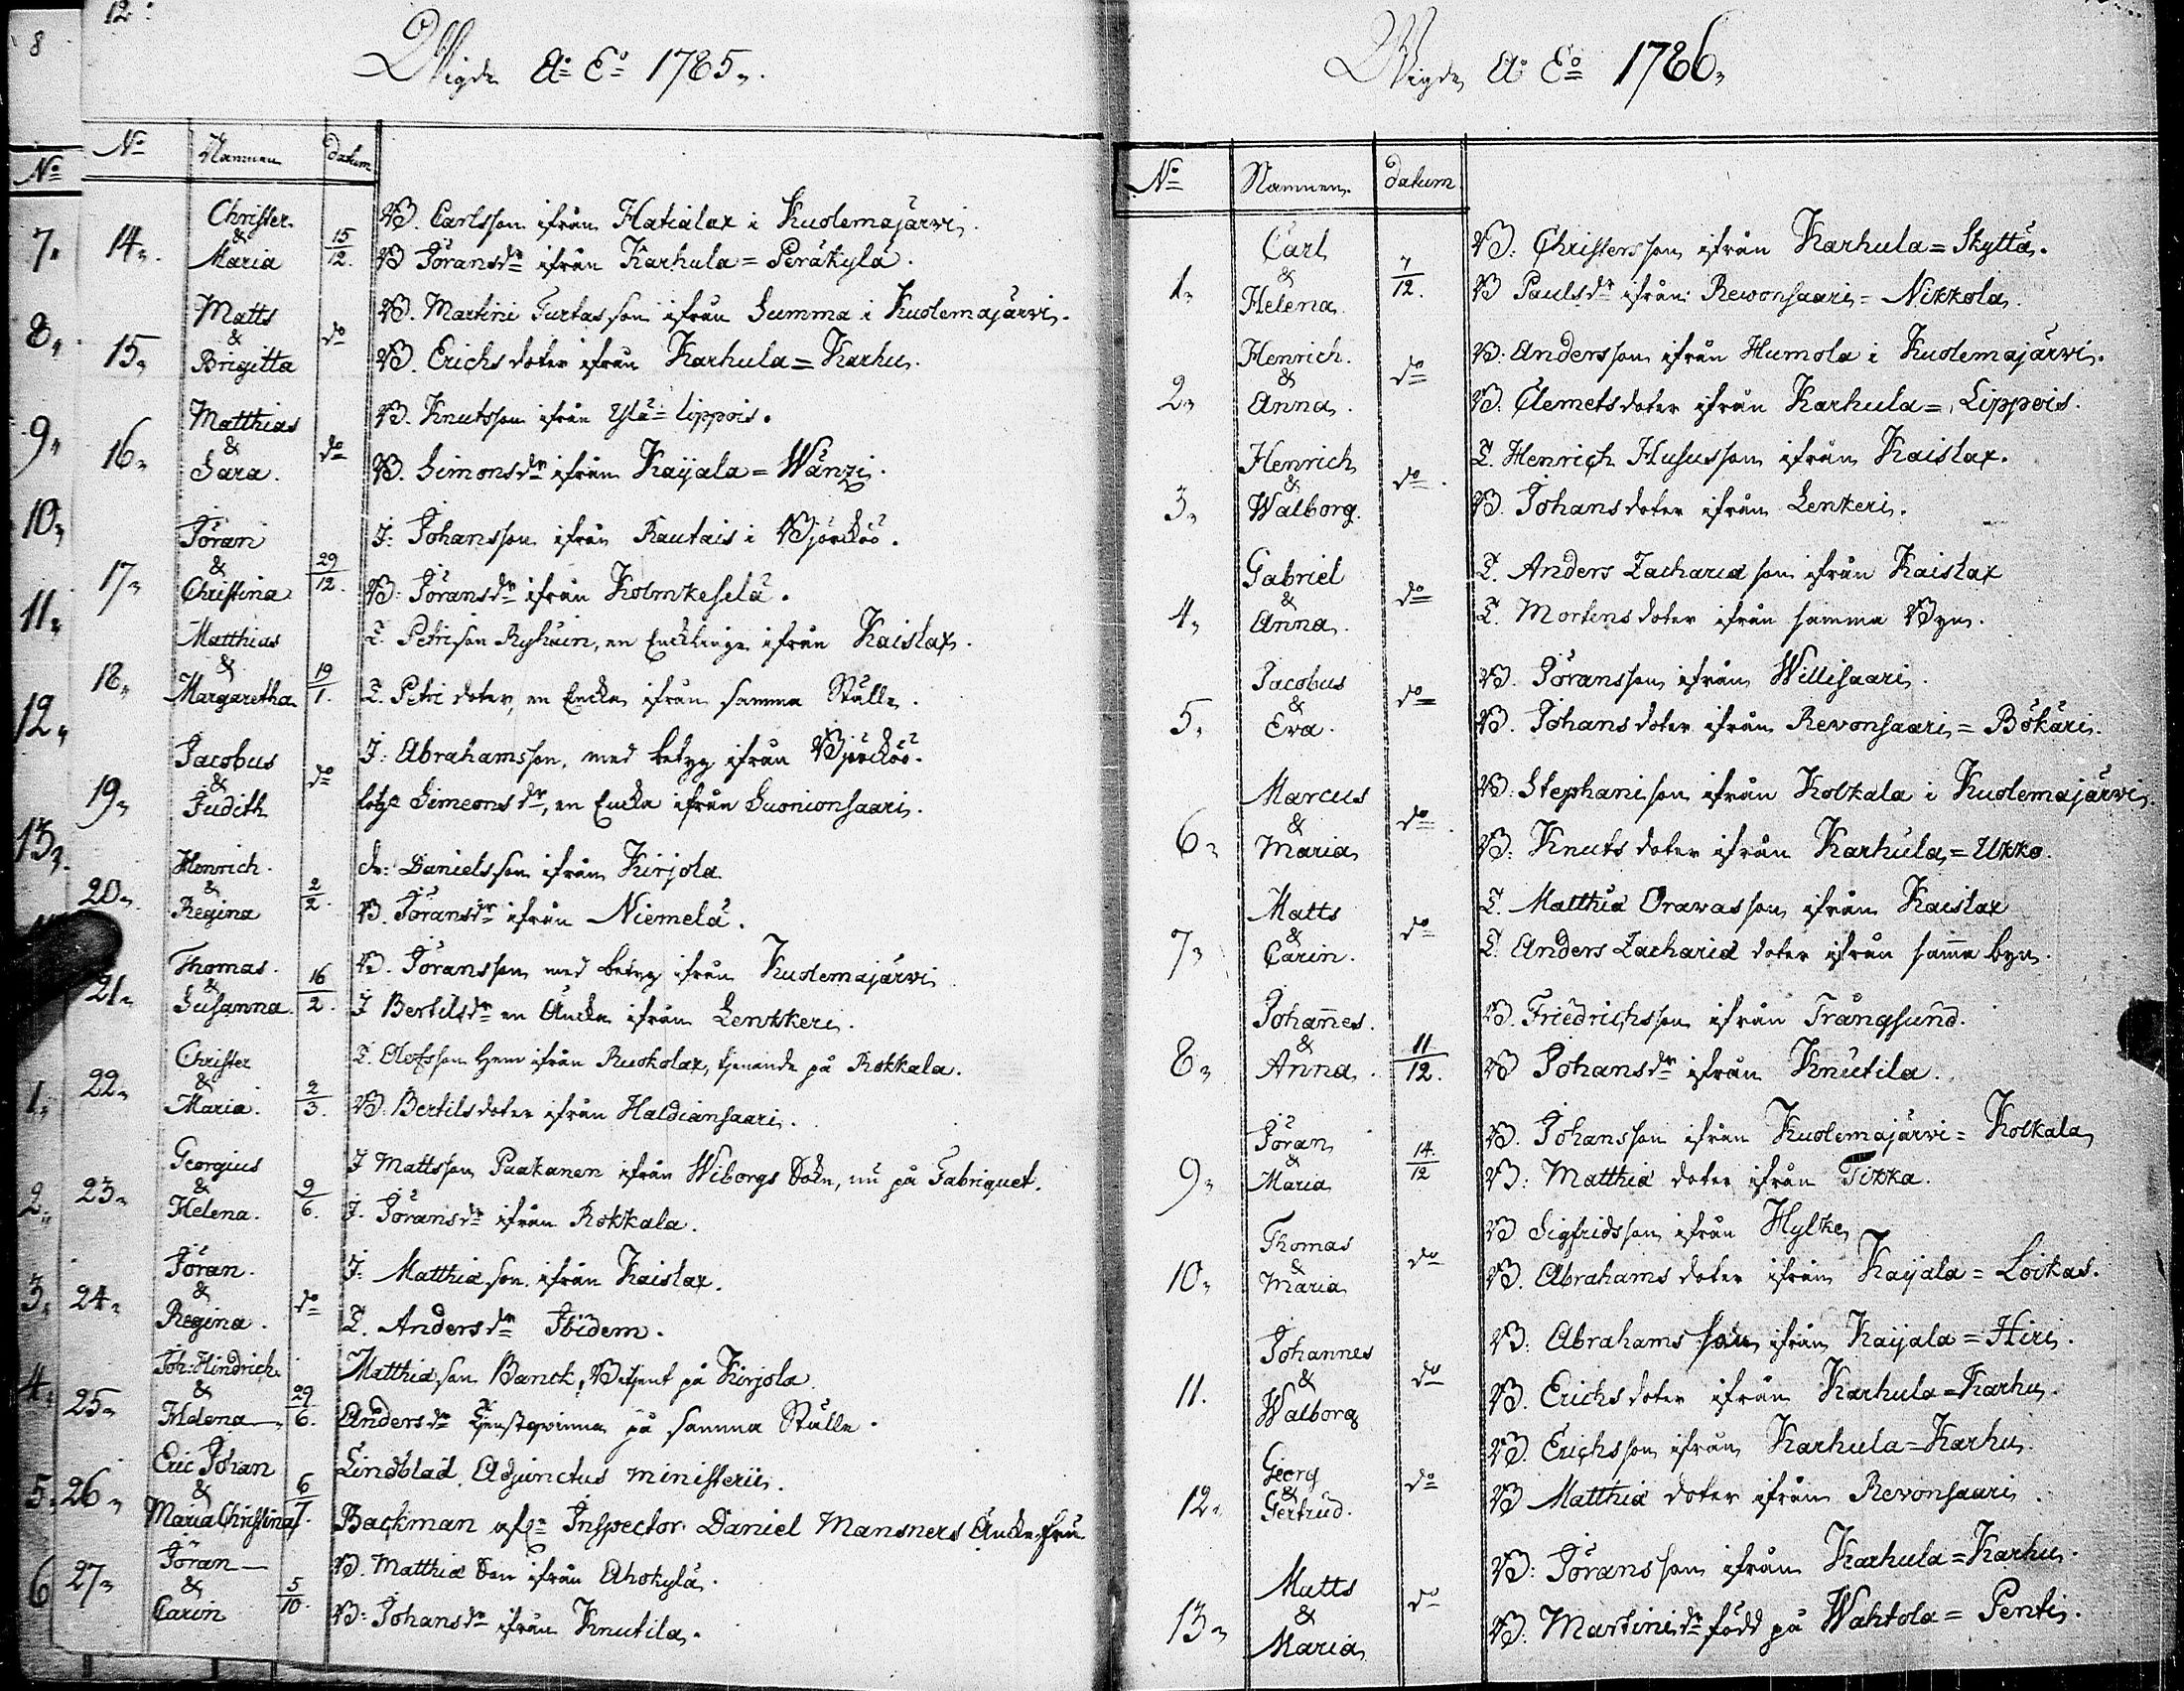 12.
8
Wigde Ao Eo 1785.
No
No Namnen datum
7.
8.
9.
10.
11.
12.
13.
1.
2.
3.
4.
5.
6
14. Christer & Maria 15/12.
B. Carlsson ifrån Hatialax i Kuolemajärvi.
B Jöransdr ifrån Karhula = Peräkylä.
15. Matts & Brigitta do
B. Martini Turtas son ifrån Summa i Kuolemajärvi.
B. Erichs doter ifrån Karhula = Karhu.
16. Matthias & Sara. do
B. Knutsson ifrån Ylä = Lippois.
B. Simonsdr ifrån Kaijala = Wänzi.
17. Jöran & Christina 29/12.
I: Johansson ifrån Rautais i Björckö.
B: Jöransdr ifrån Kolmikeselä.
18. Matthias & Margaretha 19/1.
T. Petri son Ryhäin, en Enckling ifrån Kaislax.
T. Petri doter, en Encka ifrån samma Ställe.
19. Jacobus & Judith do
I: Abrahamsson, med betyg ifrån Björckö.
Simeonsdr, en Encka ifrån Suonionsaari.
20. Henrich. & Regina 2/2.
dr: Danielsson ifrån Kirjola.
B. Jöransdr ifrån Niemelä.
21. Thomas. & Susanna. 16/2.
B. Jöransson med betyg ifrån Kuolemajärvi
I Bertilsdr en Äncka ifrån Lenkkeri.
22. Christer & Maria. 2/3.
T. Olofsson hem ifrån Ruokolax, tjenande på Rokkala.
B. Bertilsdoter ifrån Haldiansaari.
23. Georgius & Helena. 9/6.
I Mattsson Paakanen ifrån Wiborgs Sokn, nu på Fabriquet.
I. Jöransdr ifrån Rokkala.
24. Jöran. & Regina. do
I: Matthiæ son ifrån Kaislax.
T. Andersdr Ibidem.
25. Joh: Hindrich & Helena 29/6.
Matthiæ son Banck, Betjent på Kirjola.
Andersdr tjenstqvinna på samma Ställe.
26. Eric Johan & Maria Christina 6/7.
Lindblad Adjunctus ministerii.
Backman Inspector Daniel Mansners Äncke fru
27. Jöran & Carin 5/10.
B. Matthiæ Son ifrån Ahokylä.
B: Johansdr ifrån Knutila.
Wigde Ao Eo 1786.
No Namnen. datum
1. Carl & Helena. 7/12.
B: Christersson ifrån Karhula = Skyttä.
B Paulsdr ifrån Rewonsaari = Nikkola.
2. Henrich. & Anna. do
B: Andersson ifrån Humola i Kuolemajärvi.
B: Clemets doter ifrån Karhula = Lippois.
3. Henrich & Walborg. do
T. Henrich Hususson ifrån Kaislax.
B. Johansdoter ifrån Lenkeri.
4. Gabriel & Anna. do
T. Anders Zachariæ son ifrån Kaislax
T. Mortens doter ifrån samma Byn.
5. Jacobus & Eva. do
B. Jöransson ifrån Willisaari.
B. Johans doter ifrån Revonsaari = Bökäri.
6. Marcus & Maria do
B: Stephani son ifrån Kolkala i Kuolemajärvi.
B: Knuts doter ifrån Karhula = Ukko.
7. Matts & Carin. do
T. Matthiæ Orawas son ifrån Kaislax
T. Anders Zachariæ doter ifrån samma byn.
8. Johannes. & Anna. 11/12.
B. Friedrichsson ifrån Trångsund.
B Johansdr ifrån Knutila.
9. Jöran & Maria 14/12
B. Johansson ifrån Kuolemajärvi = Kolkala
B: Matthiæ doter ifrån Tikka.
10. Thomas & Maria do
B Sigfridsson ifrån Hylke
B. Abrahams doter ifrån Kaijala = Loikas.
11. Johannes & Walborg do
B: Abrahams son ifrån Kaijala = Hiri.
B. Erichs doter ifrån Karhula = Karhu.
12. Georg & Gertrud. do
B. Erichsson ifrån Karhula = Karhu.
B Matthiæ doter ifrån Revonsaari.
13. Matts & Maria do
B: Jöransson ifrån Karhula = Karhu.
B: Martinidr född på Wahtola = Penti.